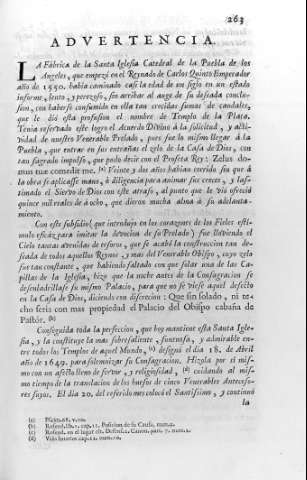 263
ADVERTENCIA.
LA Fábrica de la Santa Iglesia Catedral de la Puebla de los
Angeles, que empezó en el Reynado de Carlos Quinto Emperador
año de 1550. habia caminado casi la edad de un siglo en un estado
informe, lento, y perezoso, sin arribar al auge de su deseada conclu-
sion, con haberse consumido en ella tan crecidas sumas de caudales,
que le dió esta profusion el nombre de Templo de la Plata.
Tenia reservado este logro el Acuerdo Divino à la solicitud, y acti-
vidad de nuestro Venerable Prelado, pues fue lo mismo llegar à la
Puebla, que entrar en sus entrañas el zelo de la Casa de Dios, con
tan sagrado impulso, que pudo decir con el Profeta Rey: Zelus do-
mus tuæ comedit me. (a) Veinte y dos años habian corrido sin que à
la obra se aplicasse mano, ò diligencia para animar sus censos, y las-
timado el Siervo de Dios con este atraso, al punto que le vió ofreció
quince mil reales de à ocho, que dieron mucha alma à su adelanta-
miento.
Con este subsidio (que introdujo en los corazones de los Fieles esti-
mulo eficáz para imitar la devocion de su Prelado) fue lloviendo el
Cielo tantas avenidas de tesoros, que se acabó la construccion tan de-
seada de todos aquellos Reynos, y mas del Venerable Obispo, cuyo zelo
fue tan constante, que habiendo faltado con que solar una de las Ca-
pillas de la Iglesia, hizo que la noche antes de la Consagracion se
desenladrillase su mismo Palacio, para que no se viese aquel defecto
en la Casa de Dios, diciendo con discrecion: Que sin solado, ni te-
cho seria con mas propiedad el Palacio del Obispo cabaña de
Pastór. (b)
Conseguida toda la perfeccion, que hoy mantiene esta Santa Igle-
sia, y la constituye la mas sobresaliente, suntuosa, y admirable en-
tre todos los Templos de aquel Mundo, (c) designó el dia 18. de Abril
de 1649. para solemnizar su Consagracion. Hizola por sí mis-
mo con un afecto lleno de fervor, y religiosidad, (d) cuidando al mis-
mo tiempo de la translacion de los huesos de cinco Venerables Anteceso-
res suyos. El dia 20. del referido mes colocó el Santísimo, y continuó
la
(a) Psalm. 68. v. 10.
(b) Rosend. lib. 1. cap. 11.
(c) Rosend. en el lugar cit.
(d)